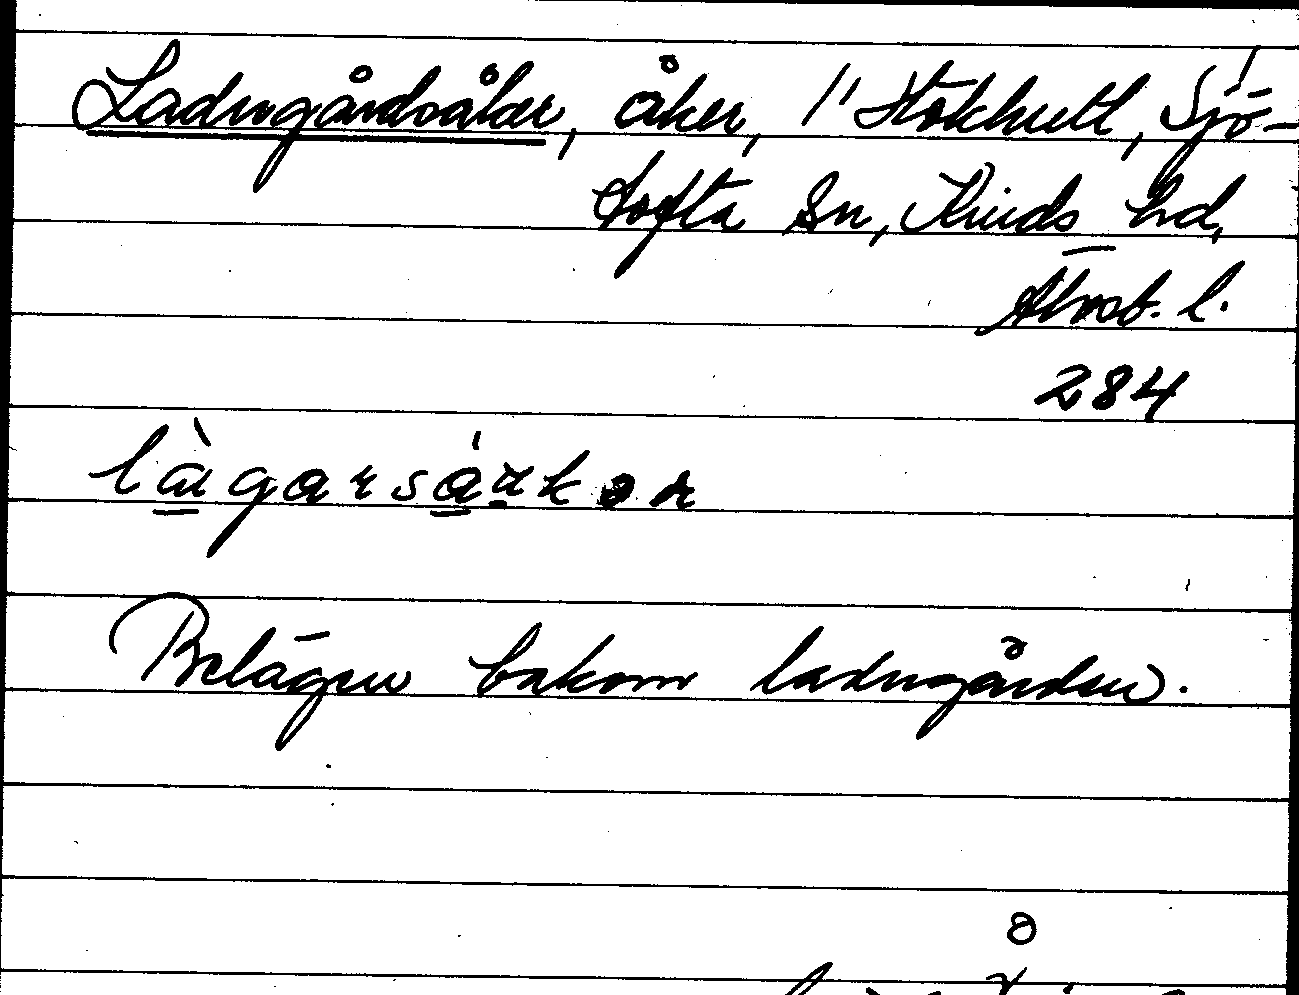 Ladugårdsåker, åker, 1/1 Stökhult, Sjö-
tofta Sn, Kinds hd,
Älvsb. l.
284
làgarsákər
Belägen bakom ladugården.